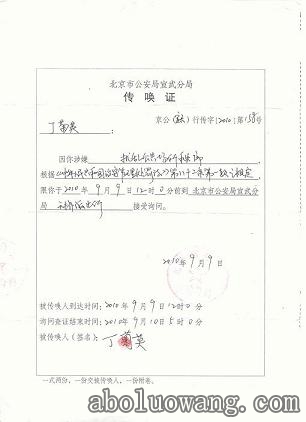 北京市公安局宣武分局
传唤证
京公(宣)行传字[2010]第158号
丁菊英:
因你涉嫌 扰乱公共场所秩序
根据《中华人民共和国治安管理处罚法》第八十二条第一款之规定
限你于2010年9月9日12时0分前到北京市公安局宣武分
局 天桥派出所 接受询问。
2010年9月9日
被传唤人到达时间:2010年9月9日12时0分
询问查证结束时间:2010年9月10日5时0分
被传唤人(签名):丁菊英
一式两份,一份交被传唤人,一份附卷。
aboluowang.com